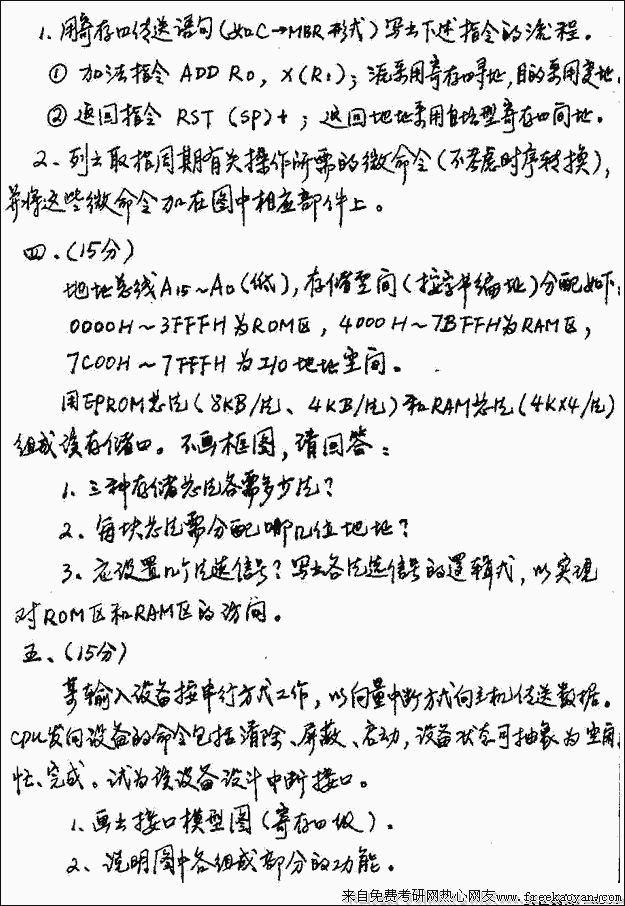 1. 用寄存四传送语句(如C→MBR形式)写出下述指令的流程。
① 加法指令 ADD R0, X(R1); 源采用寄存四寻址,目的采用变址.
② 返回指令 RST (SP)+ ; 返回地址采用自增型寄存四间址。
2、列出取指周期有关操作所需的微命令(不考虑时序转换),
并将这些微命令加在图中相应部件上。
四、(15分)
地址总线A15~A0(低), 存储空间(按字节编址)分配如下:
0000H~3FFFH为ROM区, 4000H~7BFFH为RAM区,
7C00H~7FFFH为I/O地址空间。
用EPROM芯片(8KB/片、4KB/片)和RAM芯片(4K×4/片)
组成该存储四。不画框图,请回答:
1. 三种存储芯片各需多少片?
2. 每块芯片需分配哪几位地址?
3. 应设置几个片选信号?写出各片选信号的逻辑式,以实现
对ROM区和RAM区的访问。
五、(15分)
某输入设备按串行方式工作,以向量中断方式向主机传送数据。
CPU发向设备的命令包括清除、屏蔽、启动,设备状态可抽象为空闲、
忙、完成。试为该设备设计中断接口。
1. 画出接口模型图(寄存四级).
2、说明图中各组成部分的功能。
来自免费考研网热心网友www.freekaoyan.com